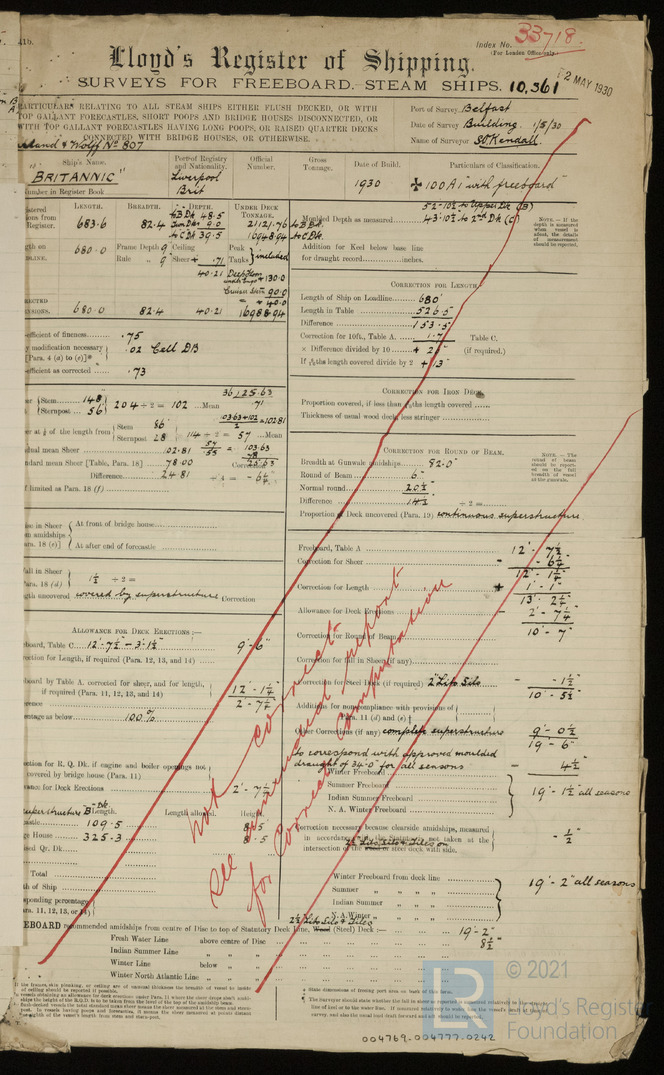 Index No. 33718.
(For London Office only.)
Lloyd's Register of Shipping.
SURVEYS FOR FREEBOARD. STEAM SHIPS. 10,361
2 MAY 1930
PARTICULARS RELATING TO ALL STEAM SHIPS EITHER FLUSH DECKED, OR WITH
TOP GALLANT FORECASTLES, SHORT POOPS AND BRIDGE HOUSES DISCONNECTED, OR
WITH TOP GALLANT FORECASTLES HAVING LONG POOPS, OR RAISED QUARTER DECKS
CONNECTED WITH BRIDGE HOUSES, OR OTHERWISE.
Port of Survey Belfast
Date of Survey Building. 1/5/30
Name of Surveyor S.O. Kendall.
Wolff No 807
Ship's Name. Port of Registry and Nationality. Official Number. Gross Tonnage. Date of Build. Particulars of Classification.
"BRITANNIC" Liverpool Brit 1930 100A1 "with freeboard"
Number in Register Book
LENGTH. BREADTH. DEPTH. UNDER DECK TONNAGE.
683.6 82.4 to B Dk 48.5 9.0 to C Dk 39.5 2121.76 to B Dk 16948.94 to C Dk
680.0 Frame Depth 9" Ceiling Peak Tanks } included
Rule 9" Sheer + .71
40.21 + 130.0
Cruiser Stern 90.0
+ 40.0
680.0 82.4 40.21 16988.94
Moulded Depth as measured 43'.10½ to 2nd Dk (C)
52'-10½ to Upper Dk (B)
NOTE.—If the depth is measured when vessel is afloat, the details of measurement should be reported.
Addition for Keel below base line
for draught record inches.
CORRECTION FOR LENGTH.
Length of Ship on Loadline 680'
Length in Table 526.5
Difference 153.5
Correction for 10ft., Table A. 1.7 Table C.
× Difference divided by 10 + 26" (if required.)
If 6/10ths length covered divide by 2 + 13"
CORRECTION FOR IRON DECK.
Proportion covered, if less than 7/10ths length covered
Thickness of usual wood deck, less stringer
CORRECTION FOR ROUND OF BEAM.
Breadth at Gunwale amidships 82.0"
Round of Beam 6"
Normal round 20½
Difference 14½ ÷ 2 =
Proportion of Deck uncovered (Para. 19) continuous superstructure
NOTE.—The round of beam should be reported on the full breadth of vessel at the gunwale.
Coefficient of fineness .75
modification necessary .02 Cell DB
[Para. 4 (a) to (e)]*
Coefficient as corrected .73
Stem 148
Sternpost 56 } 204 ÷ 2 = 102 Mean
at ⅛ of the length from { Stem 86
Sternpost 28 } 114 ÷ 2 = 57 Mean
mean Sheer 102.81
Standard mean Sheer [Table, Para. 18] 78.00
Difference 24.81 ÷ 4 = - 6¼"
If limited as Para. 18 (f)
Rise in Sheer { At front of bridge house
Para. 18 (e)] At after end of forecastle
Fall in Sheer
Para. 18 (d) 1½ ÷ 2 =
Length uncovered covered by superstructure Correction
ALLOWANCE FOR DECK ERECTIONS:—
Freeboard, Table C 12'-7½ - 3'-1½" 9'-6"
Correction for Length, if required (Para. 12, 13, and 14)
Freeboard by Table A. corrected for sheer, and for length,
if required (Para. 11, 12, 13, and 14) 12'-1¼"
Difference 2'-7¼"
Percentage as below 100%
Correction for R. Q. Dk. if engine and boiler openings not
covered by bridge house (Para. 11)
Allowance for Deck Erections 2'-7¼"
Length. Length allowed. Height.
109.5 8.5
House 325.3 8.5
Total
Length of Ship
Corresponding percentage
(Para. 11, 12, 13, or 14)
Freeboard, Table A 12'-7½"
Correction for Sheer - 6¼"
12'-1¼"
Correction for Length + 1'-1"
13'-2¼"
Allowance for Deck Erections - 2'-7¼"
10'-7"
Correction for Round of Beam
Correction for fall in Sheer (if any)
Correction for Steel Deck (if required) - 1½"
10'-5½"
Additions for non-compliance with provisions of
Para. 11 (d) and (e) †
Other Corrections (if any) complete superstructure 9'-0½"
19'-6"
to correspond with approved moulded
draught of 34'.0" for all seasons - 4½"
Winter Freeboard
Summer Freeboard
Indian Summer Freeboard
N. A. Winter Freeboard
19'-1½" all seasons
Correction necessary because clearside amidships, measured
in accordance with the Statute, is not taken at the
intersection of the wood or steel deck with side. - ½"
Winter Freeboard from deck line
Summer " " " "
Indian Summer " " "
N. A. Winter " " "
19'-2" all seasons
FREEBOARD recommended amidships from centre of Disc to top of Statutory Deck Line, Wood (Steel) Deck:— 19'-2"
Fresh Water Line above centre of Disc 8½"
Indian Summer Line " "
Winter Line below "
Winter North Atlantic Line " "
not correct
See amended report
for correct computation
© 2021
Lloyd's Register
Foundation
004769-004777-0242